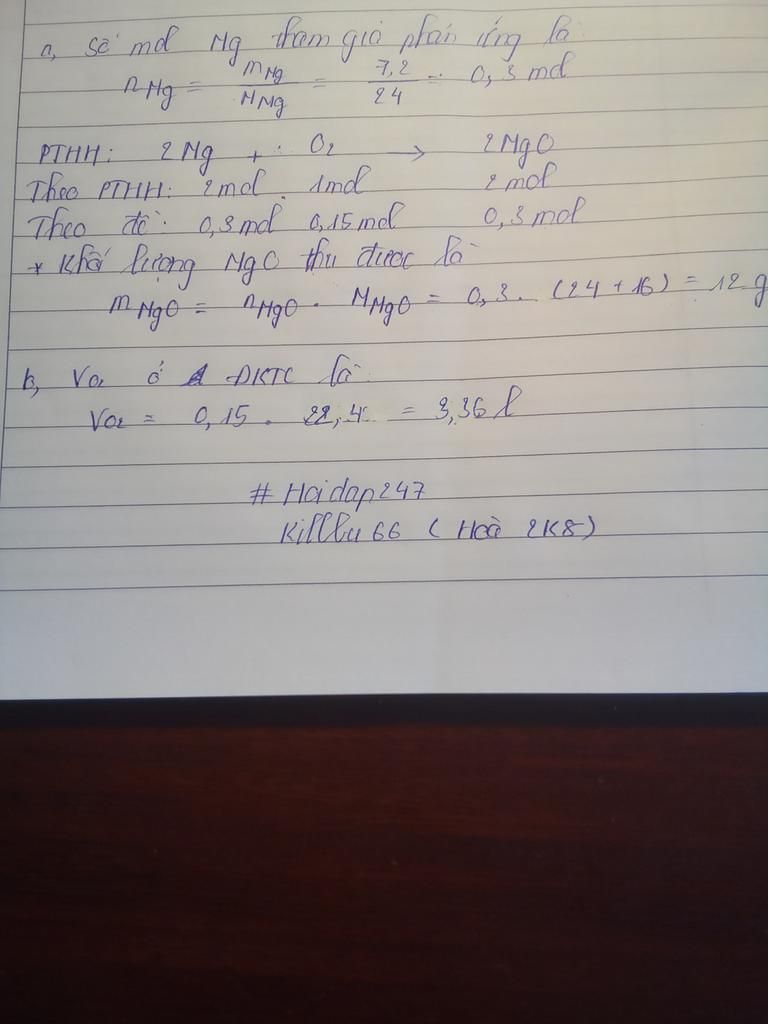 a, Số mol Mg tham gia phản ứng là:
nMg = mMg / MMg = 7,2 / 24 = 0,3 mol
PTHH: 2Mg + O2 → 2MgO
Theo PTHH: 2mol 1mol 2mol
Theo đề: 0,3mol 0,15mol 0,3mol
* Khối lượng MgO thu được là
mMgO = nMgO . MMgO = 0,3 . (24 + 16) = 12 g
b, VO2 ở ĐKTC là:
VO2 = 0,15 . 22,4 = 3,36 l
# Hoidap247
Killlu66 (Hoà 2K8)